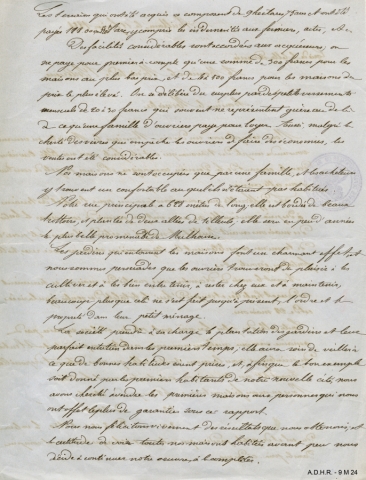 Le terrain qui
payé
Des facilités considérables sont accordées aux acquéreurs, on
ne paye pour premier à compte qu'une somme de 300 francs pour les
maisons au plus bas prix, et de 500 francs pour les maisons du
prix le plus élevé. On a delibéré du surplus par des petits versements
mensuels de 20 à 30 francs qui souvent ne représentent guère au de là
de ce qu'une famille d'ouvriers paye pour loyer. Aussi, malgré la
cherté des vivres qui empêche les ouvriers de faire des économies, les
ventes ont été considérables.
Nos maisons ne sont occupées que par une famille, et les
y trouvent un confortable auquel ils n'étaient pas habitués.
principal à mètres de long, elle est bordée de beaux
trottoirs, et plantée de deux allées de tilleuls, elle sera en peu d'années
la plus belle promenade de Mulhouse.
Les jardins qui entourent les maisons font un charmant effet, et
nous sommes persuadés que les ouvriers trouveront du plaisir à les
cultiver et à les bien entretenir, à rester chez eux et à maintenir,
beaucoup plus que cela ne s'est fait jusqu'à présent, l'ordre et la
propreté dans leur petit ménage.
La société prend à sa charge la plantation des jardins et leur
parfait entretien dans les premiers temps; elle aura soin de veiller à
ce que de bonnes habitudes soient prises, et afin que le bon exemple
soit donné par les premiers habitants de notre nouvelle cité, nous
avons cherché à vendre les premières maisons aux personnes qui nous
ont offert le plus de garanties sous ce rapport.
Nous nous félicitons vivement des résultats que nous obtenons, et
la certitude de voir toutes nos maisons habitées avant peu nous
décide à continuer notre oeuvre, à la compléter.
A.D.H.R. - 9 M 24